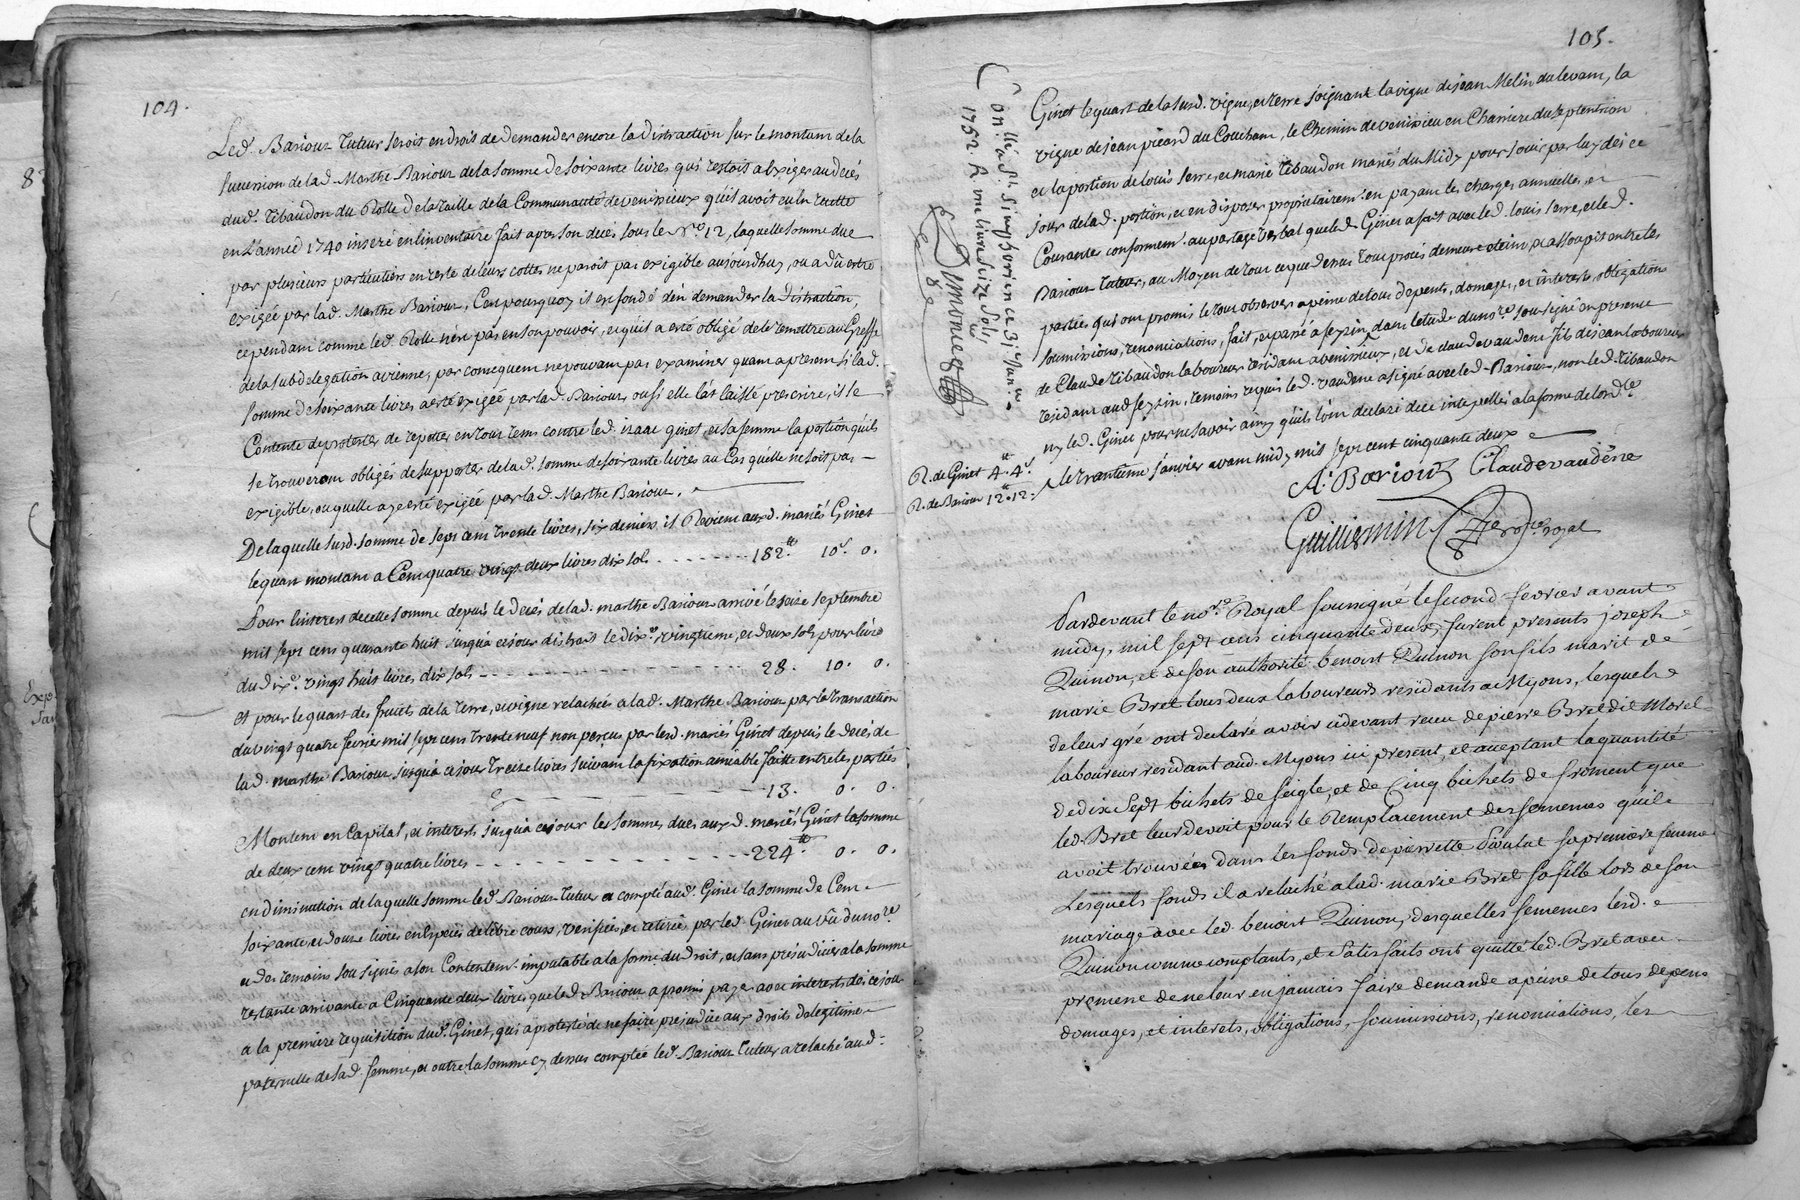 104.
Led. Bariour Tuteur seroit en droit de demander encore la distraction sur le montant de la
succession de lad. Marthe Bariour de la somme de soixante livres qui restoit a Exiger au decés
dud. Tibaudon du Rolle de la taille de la Communauté de venissieux qu'il avoit eu en recette
en L'année 1740 inseré en linventaire fait apres son decés sous le N.º 12, laquelle somme due
par plusieurs particuliers en reste de leurs cottes ne paroit pas exigible aujourdhuy, ou a dû estre
exigée par lad. Marthe Bariour, C'est pourquoy il est fondé d'en demander la distraction,
cependant comme led. Rolle n'est pas en son pouvoir, et qu'il a eté obligé de le remettre au Greffe
de la subdelegation a vienne, par consequent ne pouvant pas examiner quant a present si lad.
somme de soixante livres a eté exigée par lad. Bariour, ou si elle l'at laissée prescrire, il se
Contente de protester de repeter en tout tems contre led. isaac ginet, et sa femme la portion qu'ils
se trouveront obligés de supporter de lad. somme de soixante livres au Cas qu'elle ne soit pas
exigible, ou qu'elle aye eté exigée par lad. Marthe Bariour.
De laquelle susd. somme de sept cent trente livres, six deniers il Revient auxd. mariés Ginet
le quart montant a Cent quatre vingt deux livres dix sols . . . . . . 182.tt 10.s 0.
Pour l'interest de cette somme depuis le decés de lad. marthe Bariour arrivé le seize septembre
mil sept cens quarante huit jusqu'a ce jour distrait le dix.e, vingtieme, et deux sols pour livre
du dix.e vingt huit livres dix sols - - - - 28. 10. 0.
et pour le quart des fruits de la terre, et vigne relachées a lad. Marthe Bariour par la transaction
du vingt quatre fevrier mil sept cens trente neuf non perçus par lesd. mariés Ginet depuis le decés de
lad. marthe Bariour jusqu'a ce jour treize livres suivant la fixation amiable faitte entre les parties
- - - - 13. 0. 0.
Montent en Capital, et interests jusqu'a ce jour les sommes dues auxd. mariés Ginet la somme
de deux cent vingt quatre livres - - - - 224.tt 0. 0.
en diminution de laquelle somme led. Bariour Tuteur a compté aud. Ginet la somme de Cent
soixante, et douze livres en Especes de libre cours, verifiées, et retirées par led. Ginet au vû du no.re
et des temoins sousignés a son Contentem.t imputable a la forme du Droit, et sans prejudicier a la somme
restante arrivante a Cinquante deux livres que led. Bariour a promis payer avec interests dés ce jour
a la premiere requisition dud. Ginet, qui a protesté de ne faire prejudice aux droits de legitime
paternelle de lad. femme, et outre la somme cy dessus comptée led. Bariour Tuteur a relaché aud.
105.
Ginet le quart de la susd. vigne, et terre joignant la vigne de jean Melin du levant, la
vigne de jean picard du Couchant, le Chemin de venissieu en Charriere du septentrion
et la portion de louis serre, et marie Tibaudon mariés du Midy pour jouir par luy dés ce
jour de lad. portion, et en disposer propriétairem.t en payant les charges annuelles, et
Courantes conformem.t au partage verbal que led. Ginet a fait avec led. louis serre, et led.
Bariour tuteur, au Moyen de tout ce que dessus tout procés demeure eteint, et assoupit entre les
parties qui ont promis le tout observer a peine de tous depents, domages, et interets, obligations
soumissions, renonciations, fait, et passé a feyzin dans letude du no.re sousigné en presence
de Claude Tibaudon laboureur residant a venissieux, et de claude vaudene fils de jean laboureur
residant aud. feyzin, temoins requis led. vaudene a signé avec led. Bariour, non led. Tibaudon
ny led. Ginet pour ne savoir ainsy qu'ils l'ont declaré de ce interpellés a la forme de lord.ce
le trantieme janvier avant midy mil sept cent cinquante deux
A. Bariour Claude vaudene
Guilliermin No.re royal
Con.llé a S.t Simphorien ce 31.e Janv.r
1752 R. une livre seize sols
Simonnet
R. de Ginet 4.tt 4.s
R. de Bariour 12.tt 12.
Pardevant le no.re Royal soussigné le second fevrier avant
midy, mil sept cens cinquante deux, furent presents joseph
Quinon, et de son authorité benoist Quinon son fils marit de
marie Bret tous deux laboureurs residants a Mions, lesquels
de leur gré ont declaré avoir cidevant receu de pierre Bret dit Morel
laboureur residant aud. Myons ici present, et acceptant la quantité
de dix Sept bichets de seigle, et de Cinq bichets de froment que
led. Bret leur devoit pour le Remplacement des semences qu'il
avoit trouvées dans les fonds de pierrette Poulat sa premiere femme
Lesquels fonds il a relaché a lad. marie Bret sa fille lors de son
mariage avec led. benoist Quinon, desquelles semences lesd.
Quinon comme comptants, et satisfaits ont quitté led. Bret avec
promesse de ne leur en jamais faire demande a peine de tous depens
domages, et interets, obligations, soumissions, renonciations, les